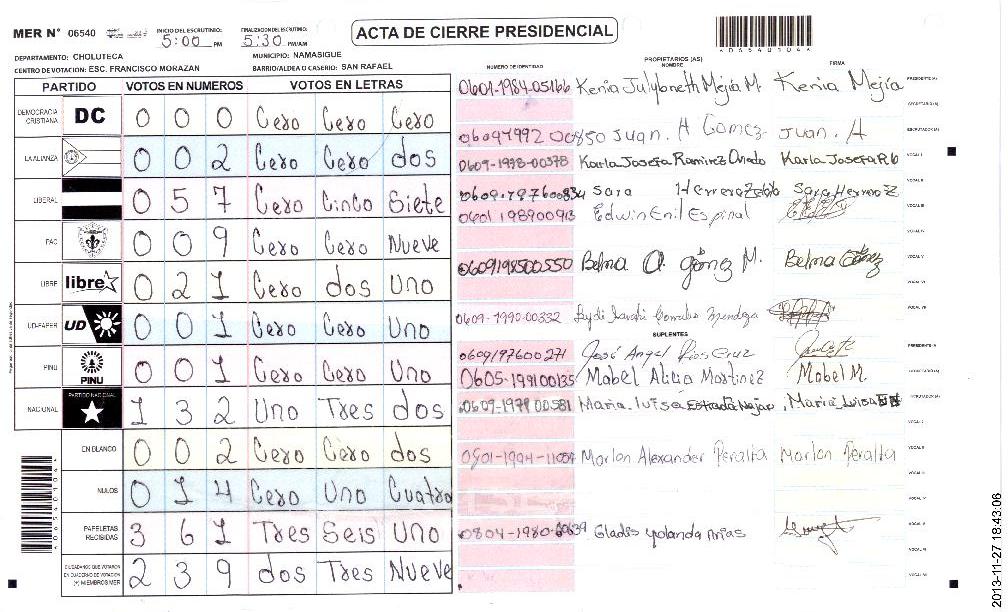 MER N° 06540
INICIO DEL ESCRUTINIO: 5:00 PM
FINALIZACION DEL ESCRUTINIO: 5:30 PM/AM
ACTA DE CIERRE PRESIDENCIAL
DEPARTAMENTO: CHOLUTECA
MUNICIPIO: NAMASIGUE
CENTRO DE VOTACION: ESC. FRANCISCO MORAZAN
BARRIO/ALDEA O CASERIO: SAN RAFAEL
PARTIDO VOTOS EN NUMEROS VOTOS EN LETRAS
DEMOCRACIA CRISTIANA DC 0 0 0 Cero Cero Cero
LA ALIANZA 0 0 2 Cero Cero dos
LIBERAL 0 5 7 Cero Cinco Siete
PAC 0 0 9 Cero Cero Nueve
LIBRE libre 0 2 1 Cero dos Uno
UD-FAPER UD 0 0 1 Cero Cero Uno
PINU PINU 0 0 1 Cero Cero Uno
NACIONAL PARTIDO NACIONAL 1 3 2 Uno Tres dos
EN BLANCO 0 0 2 Cero Cero dos
NULOS 0 1 4 Cero Uno Cuatro
PAPELETAS RECIBIDAS 3 6 1 Tres Seis Uno
CIUDADANOS QUE VOTARON EN CUADERNO DE VOTACION (+) MIEMBROS MER 2 3 9 dos Tres Nueve
NUMERO DE IDENTIDAD
PROPIETARIOS (AS)
NOMBRE
FIRMA
0601-1984-05166 Kenia Julybneth Mejía M. Kenia Mejía PRESIDENTE(A)
SECRETARIO(A)
Juan. H Gomez Juan. H ESCRUTADOR(A)
0609-1978-00378 Karla Josefa Ramirez Karla Josefa R O VOCAL I
VOCAL II
Sara Herrera Sara Herrera
0601 198900913 Edwin Enil Espinal VOCAL III
VOCAL IV
0609198500550 Belma A. gómez M. Belma Gómez VOCAL V
VOCAL VI
0609-1990-00332 Mendoza VOCAL VII
SUPLENTES
0609197600271 José Angel Rios Cruz PRESIDENTE(A)
0605-199100135 Mabel Alicia Martinez Mabel M. SECRETARIO(A)
0609-1979 00581 Maria. luisa Estrada Maria Luisa ESCRUTADOR(A)
VOCAL I
Marlon Alexander Peralta Marlon Peralta VOCAL II
VOCAL III
VOCAL IV
0804-1980-00639 Gladis yolanda Arias VOCAL V
VOCAL VI
VOCAL VII
2013-11-27 18:43:06